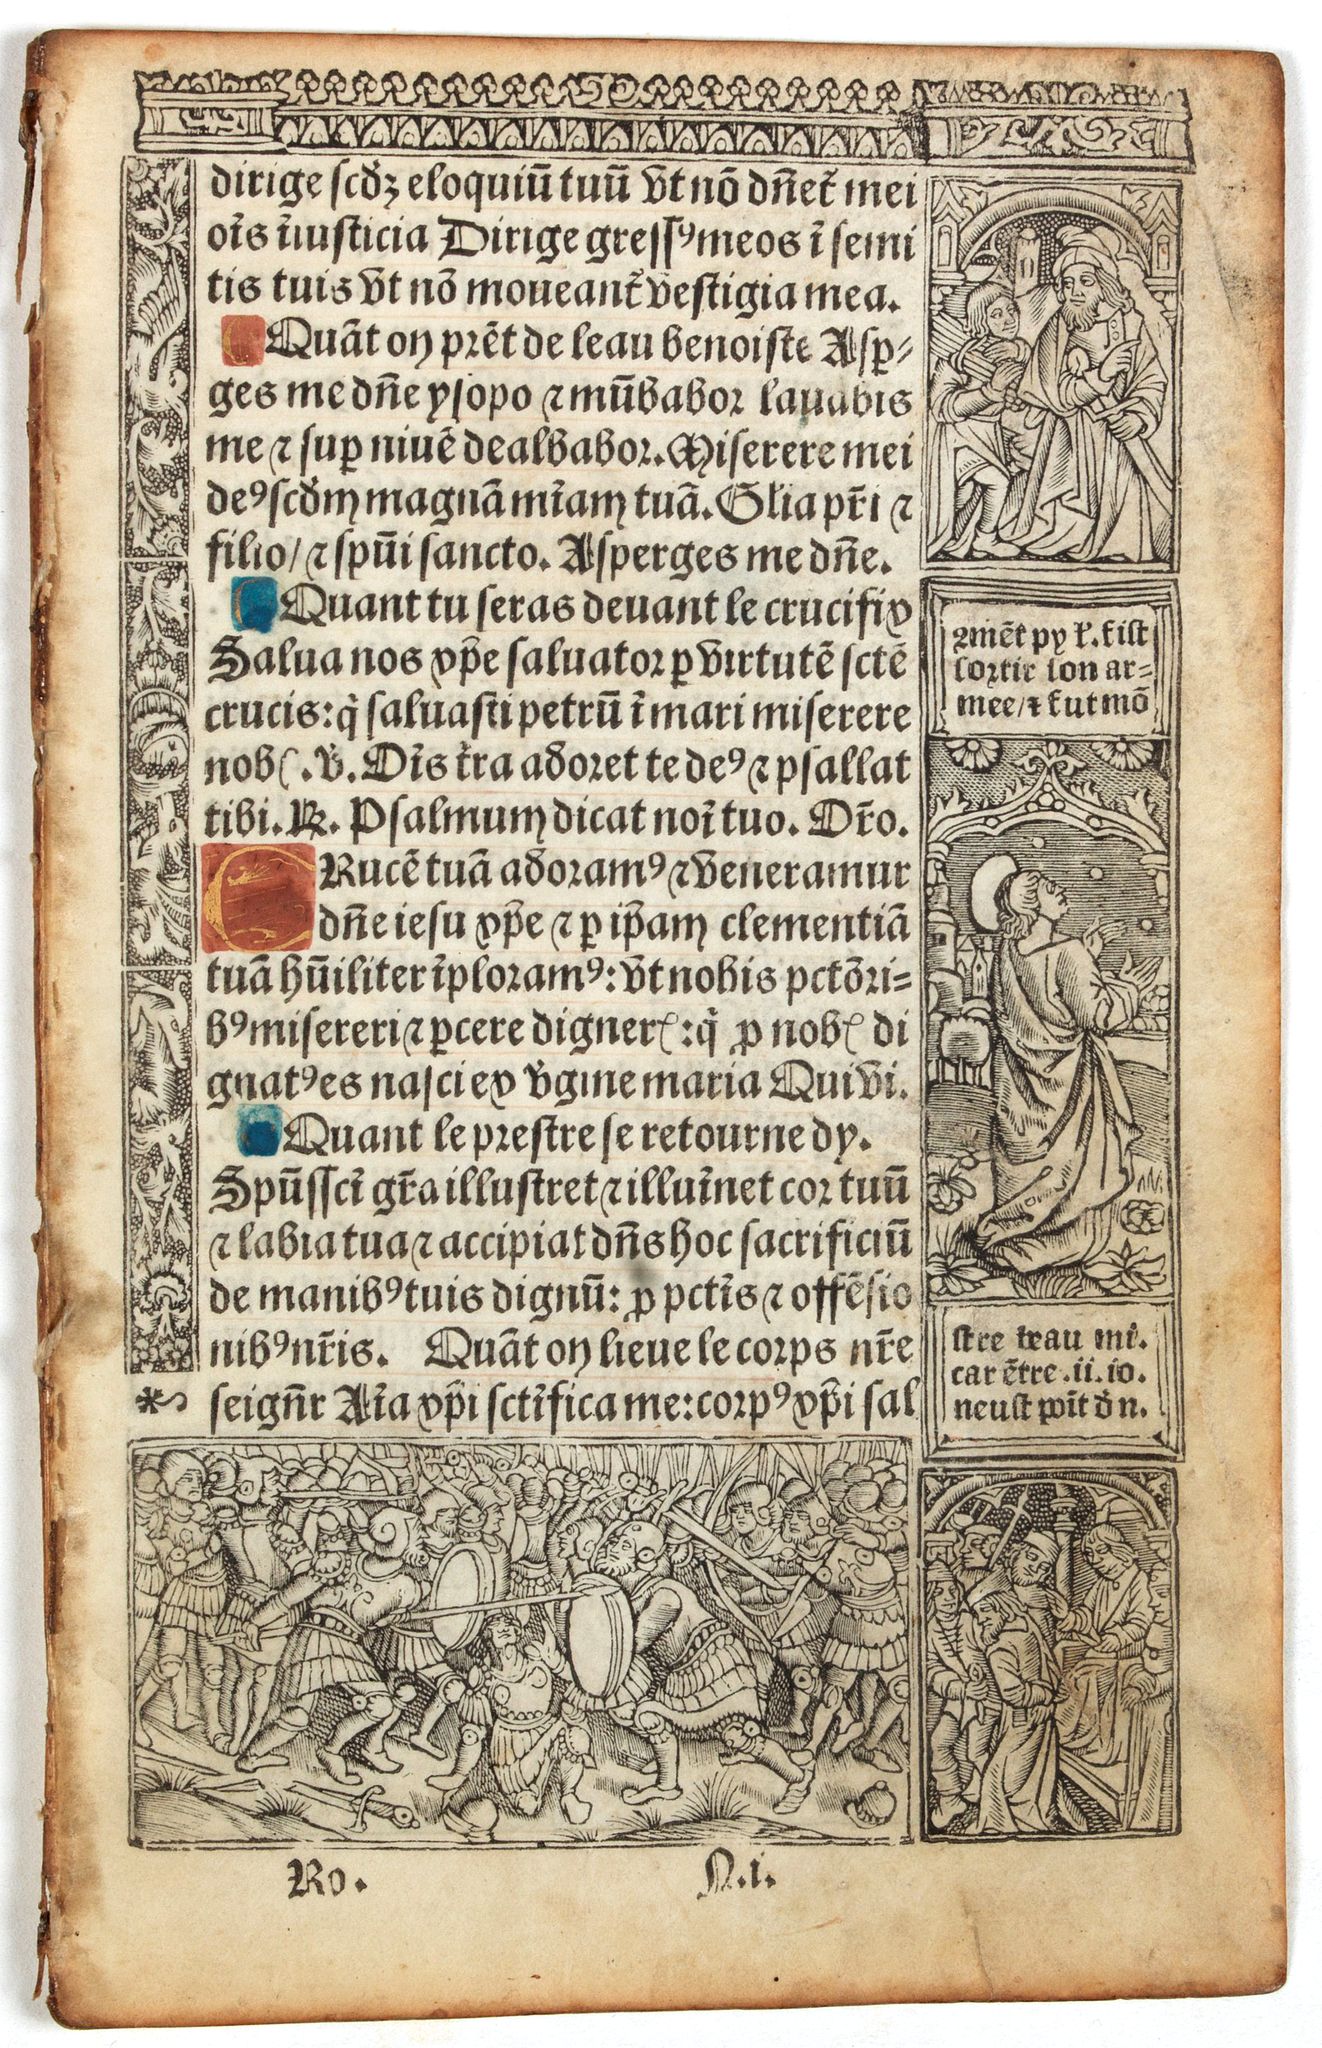 dirige scďꝫ eloquiū tuū vt nō dn̄eť mei
oīs īiusticia Dirige gressꝰ meos ī semi
tis tuis vt nō moueanť vestigia mea.
Quāt on prēt de leau benoiste Asꝑ⸗
ges me dn̄e ysopo ⁊ mūdabor lauabis
me ⁊ suꝑ niuē dealbabor. Miserere mei
deꝰ scďm magnā mīam tuā. Glīa pr̄i ⁊
filio/ ⁊ spūi sancto. Asperges me dn̄e.
Quant tu seras deuant le crucifix
Salua nos xp̄e saluator ꝑ virtutē sctē
crucis: q̄ saluasti petrū ī mari miserere
nob̾. ℣. Oīs tr̄a adoret te deꝰ ⁊ psallat
tibi. ℟. Psalmum dicat noī tuo. Or̄o.
CRucē tuā adoramꝰ ⁊ veneramur
dn̄e iesu xp̄e ⁊ ꝑ ip̄am clementiā
tuā hūiliter īploramꝰ: vt nobis pctōri⸗
bꝰ misereri ⁊ ꝑcere digner̾: q̄ ꝓ nob̾ di
gnatꝰ es nasci ex v̄gine maria Qui vi.
Quant le prestre se retourne dy.
Spūssctī gr̄a illustret ⁊ illuīnet cor tuū
⁊ labia tua ⁊ accipiat dn̄s hoc sacrificiū
de manibꝰ tuis dignū: ꝓ pctīs ⁊ offēsio
nibꝰ nr̄is. Quāt on lieue le corps nr̄e
seign̄r Aīa xp̄i sctīfica me: corpꝰ xp̄i sal
⁊mēt py
sortir son ar⸗
mee/⁊ fut mō
stre
car ētre .ii. io.
neust
Ro. N.i.